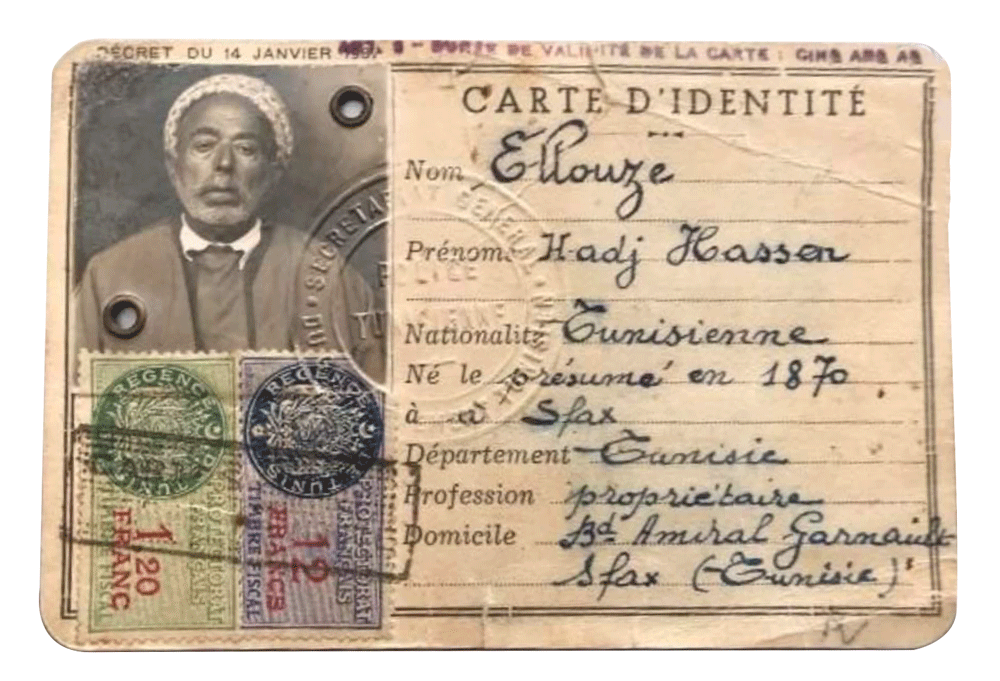 DÉCRET DU 14 JANVIER
ART. 5 - DURÉE DE VALIDITÉ DE LA CARTE : CINQ ANS
CARTE D'IDENTITÉ
Nom Ellouze
Prénoms Hadj Hassen
Nationalité Tunisienne
Né le présumé en 1870
à a Sfax
Département Tunisie
Profession propriétaire
Domicile Bd Amiral Garnault
Sfax (Tunisie)
SECRETARIAT GENERAL
POLICE
TUNISIENNE
REGENCE DE TUNIS
PROTECTORAT
FRANÇAIS
1 20
FRANC
TIMBRE FISCAL
REGENCE DE TUNIS
PROTECTORAT
FRANÇAIS
12
FRANCS
TIMBRE FISCAL